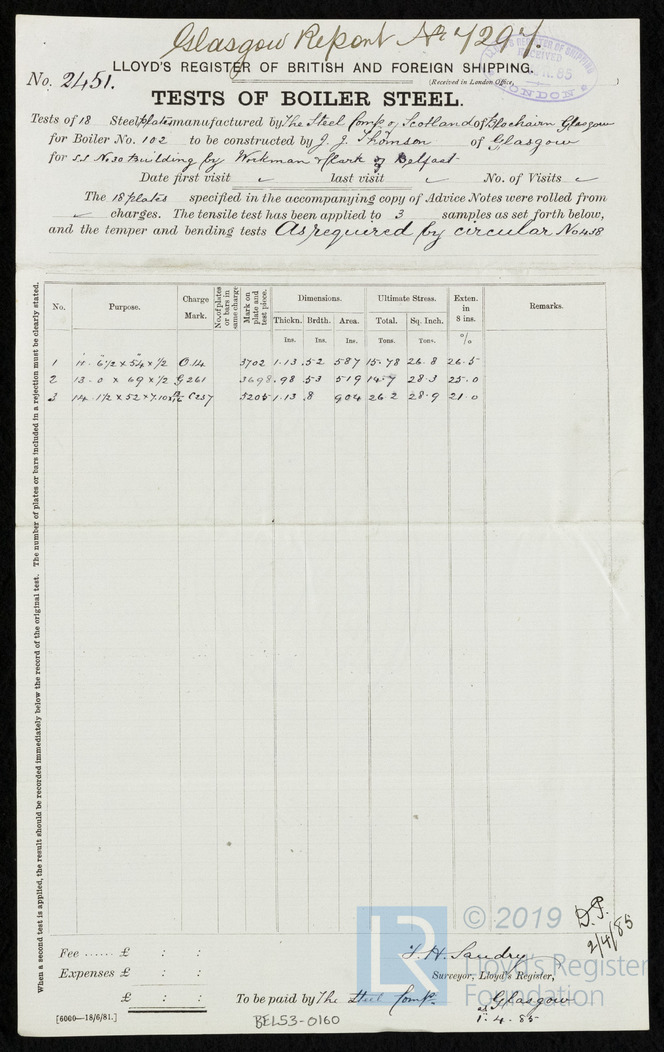 Glasgow Report No 7297.
LLOYD'S REGISTER OF SHIPPING
RECEIVED
85
LONDON
LLOYD'S REGISTER OF BRITISH AND FOREIGN SHIPPING.
No. 2451.
(Received in London Office, )
TESTS OF BOILER STEEL.
Tests of 18 Steel plates manufactured by The Steel Comp. of Scotland of Blochairn Glasgow
for Boiler No. 102 to be constructed by J. J. Thomson of Glasgow
for S.S. No 30 Building by Workman & Clark of Belfast
Date first visit ✓ last visit ✓ No. of Visits ✓
The 18 plates specified in the accompanying copy of Advice Notes were rolled from
✓ charges. The tensile test has been applied to 3 samples as set forth below,
and the temper and bending tests As required by circular No 458
When a second test is applied, the result should be recorded immediately below the record of the original test. The number of plates or bars included in a rejection must be clearly stated.
No. Purpose. Charge Mark. No. of plates or bars in same charge Mark on plate and test piece. Dimensions. Ultimate Stress. Exten. in 8 ins. Remarks.
Thickn. Brdth. Area. Total. Sq. Inch.
Ins. Ins. Ins. Tons. Tons. %
1 11. 6 1/2 x 54 x 1/2 O.14 3702 1.13 .52 587 15.78 26.8 26.5
2 13.0 x 69 x 1/2 G261 3698 .98 .53 519 14.7 28.3 25.0
3 14. 1/2 x 52 x 7.10 C257 5205 1.13 .8 904 26.2 28.9 21.0
D.P.
2/4/85
© 2019
Lloyd's Register
Foundation
LR
Fee ...... £ : :
Expenses £ : :
£ : :
Surveyor, Lloyd's Register,
To be paid by The Steel Comp. Glasgow
1.4.85
[6000—18/6/81.]
BEL53-0160